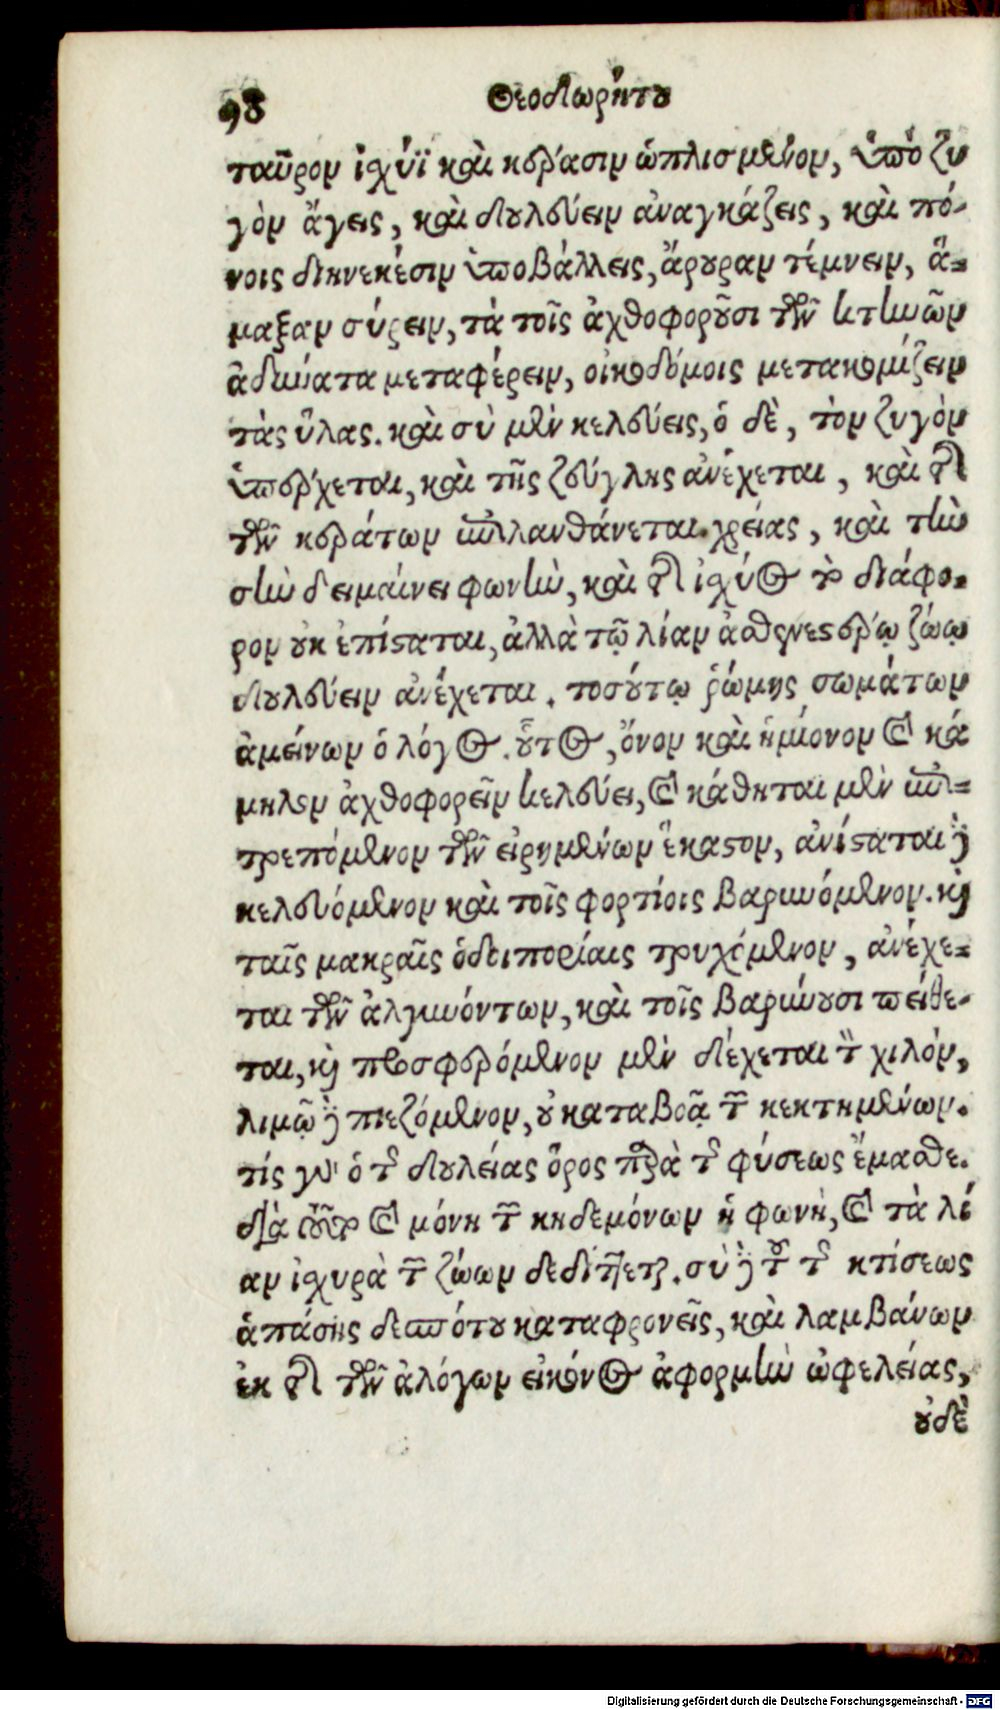 98 Θεοδωρήτου
ταῦρον ἰσχύϊ καὶ κέρασιν ὡπλισμένον, ὑπὸ ζυ
γὸν ἄγεις, καὶ δουλεύειν ἀναγκάζεις, καὶ πό-
νοις διηνεκέσιν ὑποβάλλεις, ἄρουραν τέμνειν, ἅ-
μαξαν σύρειν, τὰ τοῖς ἀχθοφοροῦσι τῶν κτηνῶν
ἀδύνατα μεταφέρειν, οἰκοδόμοις μετακομίζειν
τὰς ὕλας. καὶ σὺ μὲν κελεύεις, ὁ δὲ, τὸν ζυγὸν
ὑπέρχεται, καὶ τῆς ζεύγλης ἀνέχεται, καὶ τῆς
τῶν κεράτων ἐπιλανθάνεται χρείας, καὶ τὴν
σὴν δειμαίνει φωνὴν, καὶ τῆς ἰσχύος τὸ διάφο-
ρον οὐκ ἐπίσταται, ἀλλὰ τῷ λίαν ἀσθενεστέρῳ ζώῳ
δουλεύειν ἀνέχεται. τοσούτῳ ῥώμης σωμάτων
ἀμείνων ὁ λόγος. οὗτος, ὄνον καὶ ἡμίονον καὶ κά
μηλον ἀχθοφορεῖν κελεύει, καὶ κάθηται μὲν ἐπι-
τρεπόμενον τῶν εἰρημένων ἕκαστον, ἀνίσταται δὲ
κελευόμενον καὶ τοῖς φορτίοις βαρυνόμενον. καὶ
ταῖς μακραῖς ὁδοιπορίαις τρυχόμενον, ἀνέχε-
ται τῶν ἀλγυνόντων, καὶ τοῖς βαρύνουσι πείθε-
ται, καὶ προσφερόμενον μὲν δέχεται τὸν χιλὸν,
λιμῷ δὲ πιεζόμενον, οὐ καταβοᾷ τῶν κεκτημένων.
τίς γὰρ ὁ τῆς δουλείας ὅρος παρὰ τῆς φύσεως ἔμαθε.
διὰ τοῦτο καὶ μόνη τῶν κηδεμόνων ἡ φωνὴ, καὶ τὰ λί
αν ἰσχυρὰ τῶν ζώων δεδίττεται. σὺ δὲ τοῦ τῆς κτίσεως
ἁπάσης δεσπότου καταφρονεῖς, καὶ λαμβάνων
ἐκ τῆς τῶν ἀλόγων εἰκόνος ἀφορμὴν ὠφελείας,
οὐδὲ
Digitalisierung gefördert durch die Deutsche Forschungsgemeinschaft - DFG